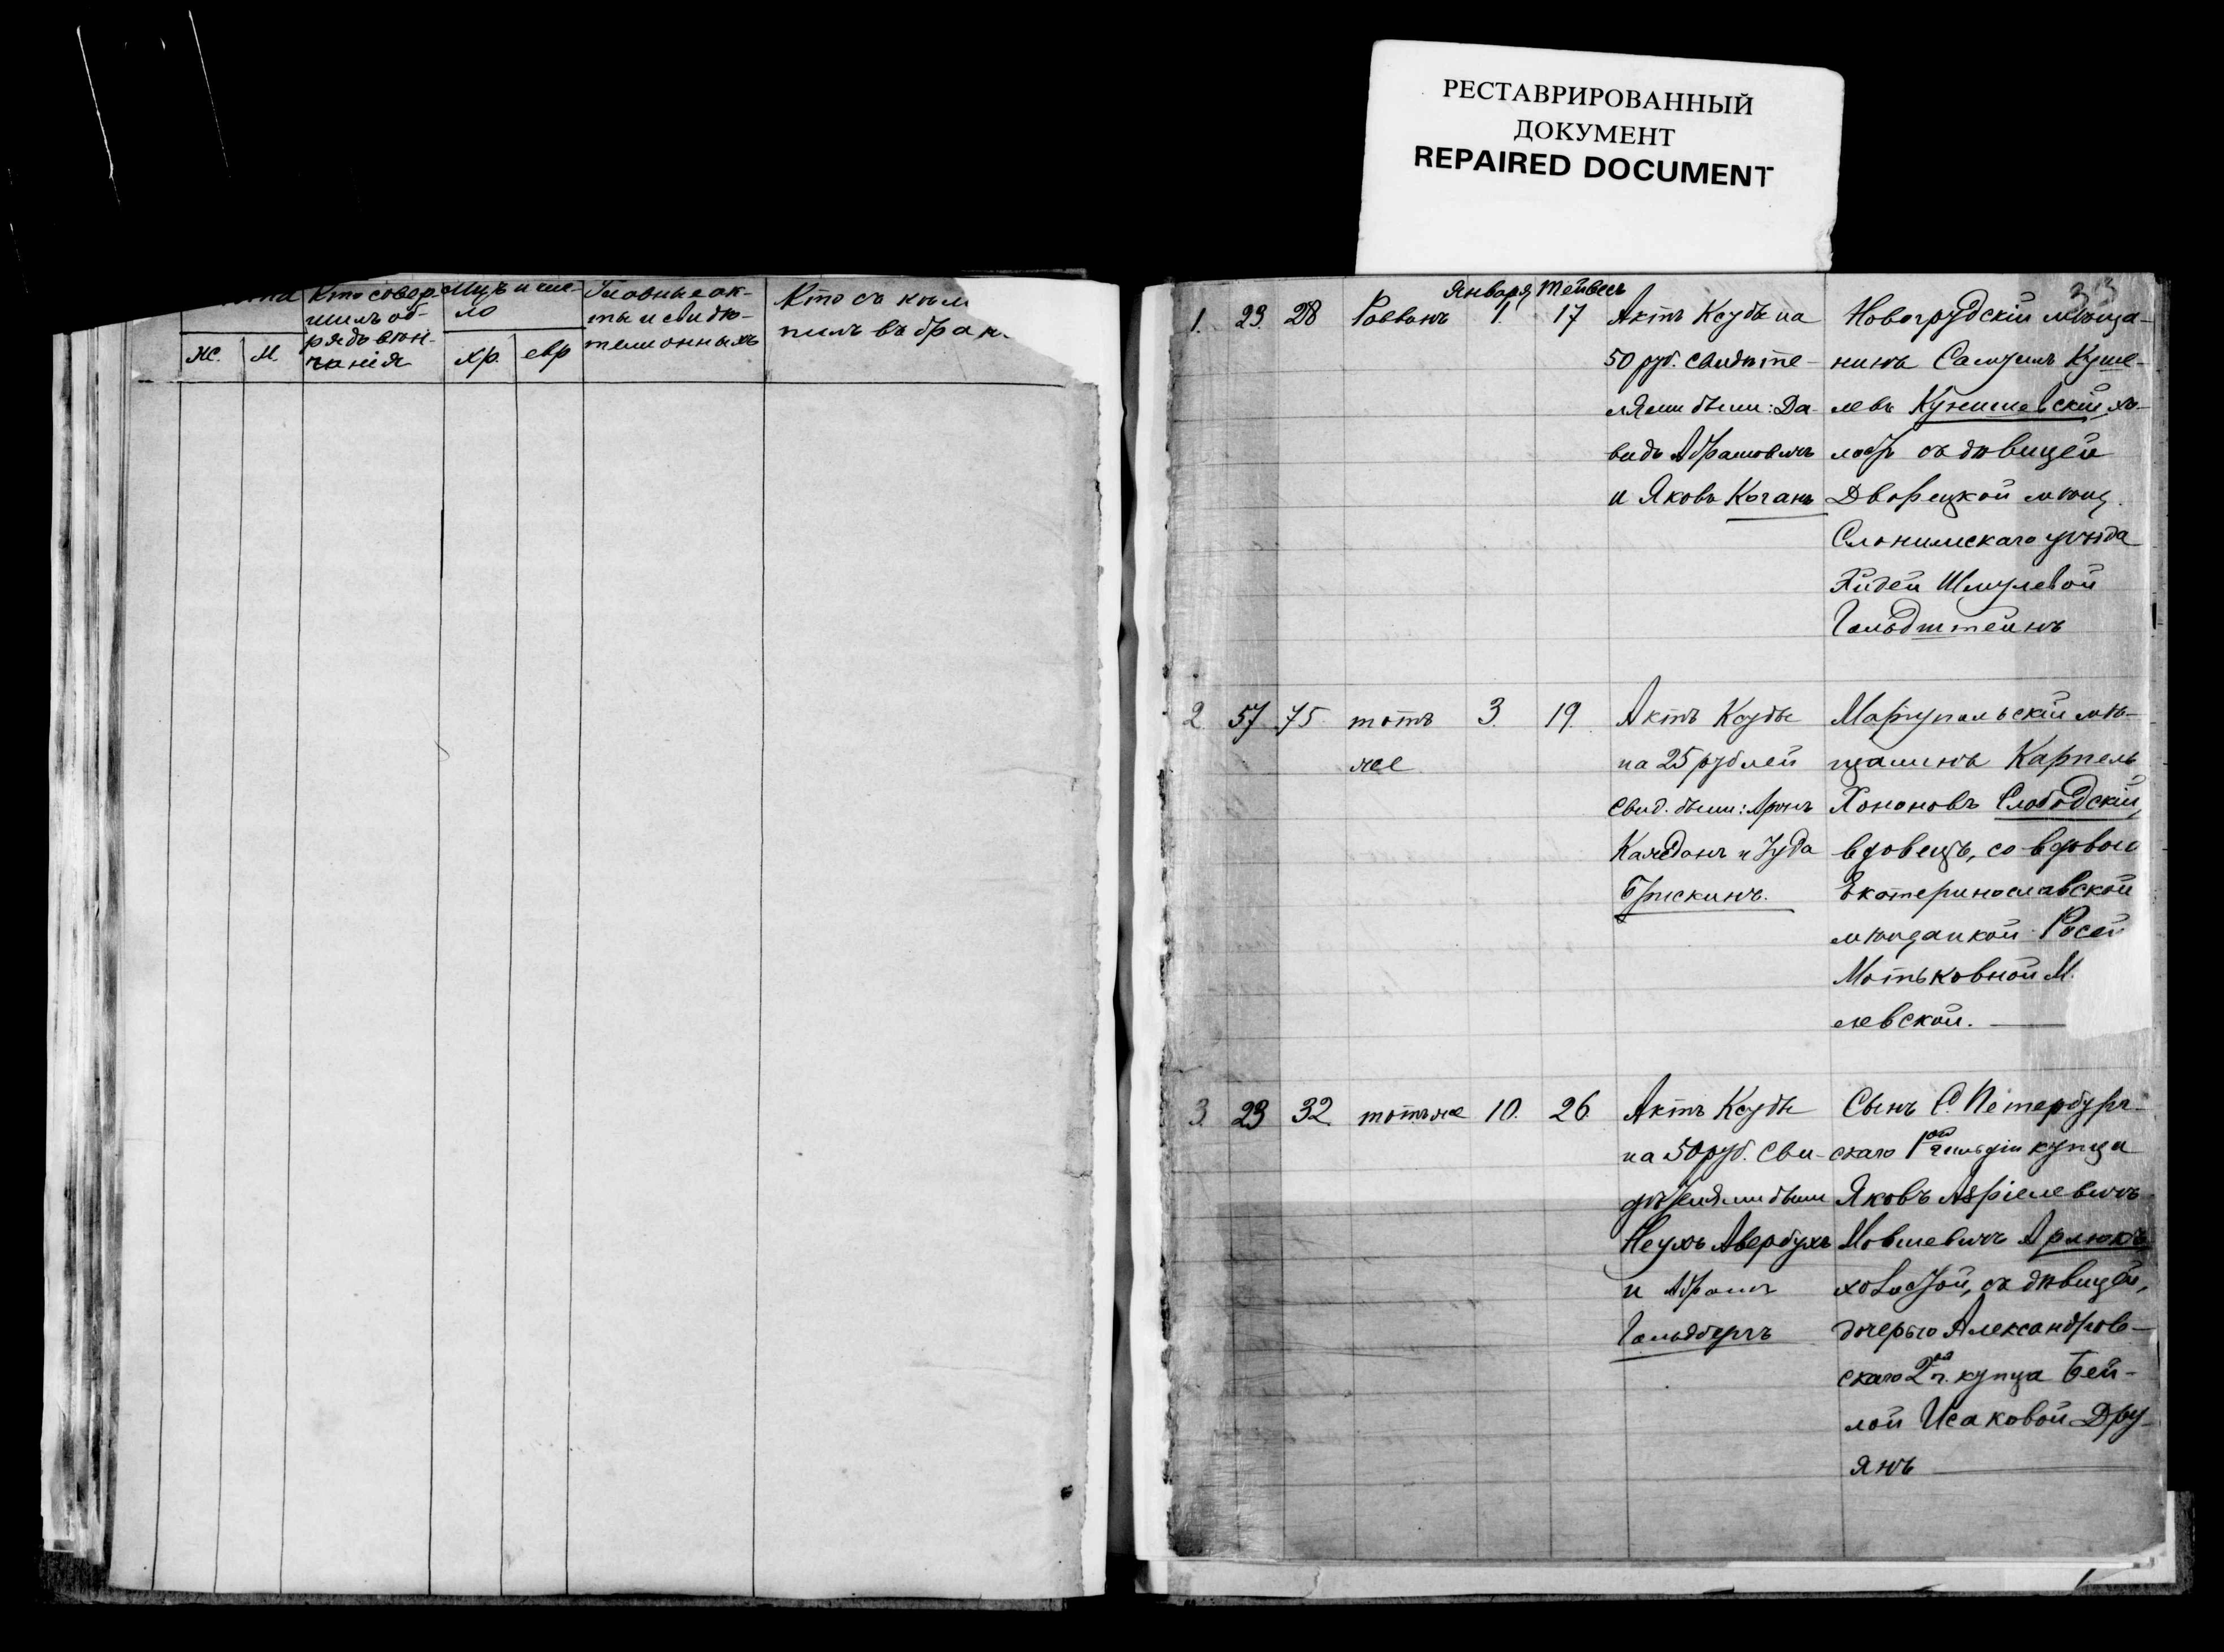 РЕСТАВРИРОВАННЫЙ
ДОКУМЕНТ
REPAIRED DOCUMENT
Кто совер-
шилъ об-
рядъ вѣн-
чанія
Мцъ и чис-
ло
Главные ак-
ты и свидѣ-
Кто съ кѣм
пилъ въ брак
ж. м. хр. евр
Января Тейвесъ
1. 23. 28 Раввинъ 1. 17
Актъ Ксубъ на
50 руб. свидѣте-
лями были: Да-
видъ Абрамовичъ
и Яковъ Коганъ
Новогрудскій мѣща-
нинъ Самуилъ
хо-
лостъ съ дѣвицей
Дворецкой мѣщ.
Слонимскаго уѣзда
Шмулевой
Гольдштейнъ
2. 57 75. тотъ 3. 19.
же
Актъ Ксубы
на 25 рублей
Свид. были: Аронъ
и Іуда
Брискинъ.
Маріупольскій мѣ-
щанинъ Карпель
Хононовъ Слободскій,
вдовецъ, со вдовою
Екатеринославской
мѣщанкой Росей
Мотьковной М.
левской.
3. 23 32. тотъ же 10. 26.
Актъ Ксубы
на 50 руб. Сви-
дѣтелями были
Неухъ Авербухъ
и Абрамъ
Гольдбергъ
Сынъ С. Петербург-
скаго 1ой гильдіи купца
Яковъ Азріелевичъ
Мовшевичъ Арлюкъ
холостой, съ дѣвицей,
дочерью Александров-
скаго 2ой г. купца Бей-
лой Исаковой Дру-
янъ